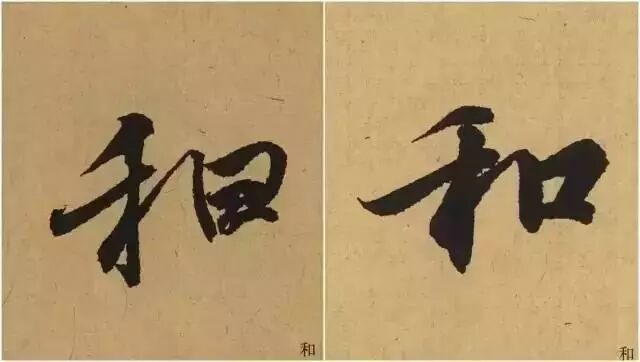 和 和
和 和